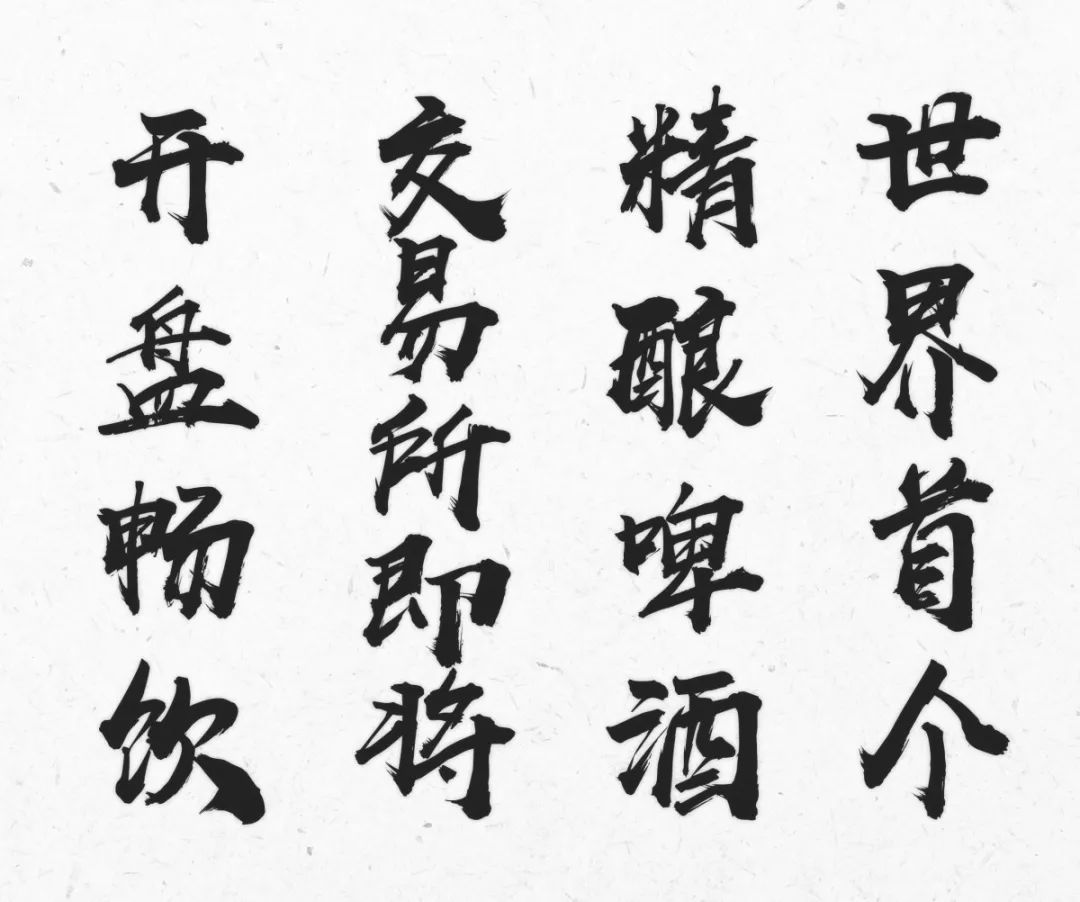 世界首个
精酿啤酒
交易所即将
开盘畅饮